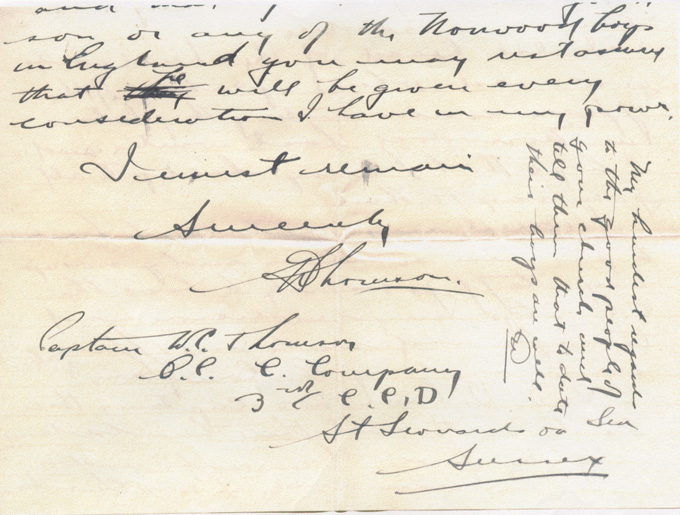 son or any of the Norwood boys
in England you may rest assured
that he will be given every
consideration I have in my power.
I must remain
Sincerely
Thomson.
Captain W.C. Thomson
O.C. C. Company
3rd C.C.D
St Leonards on Sea
Sussex
My kindest regards
to the good people of
your church and
tell them that to date
their boys are well.